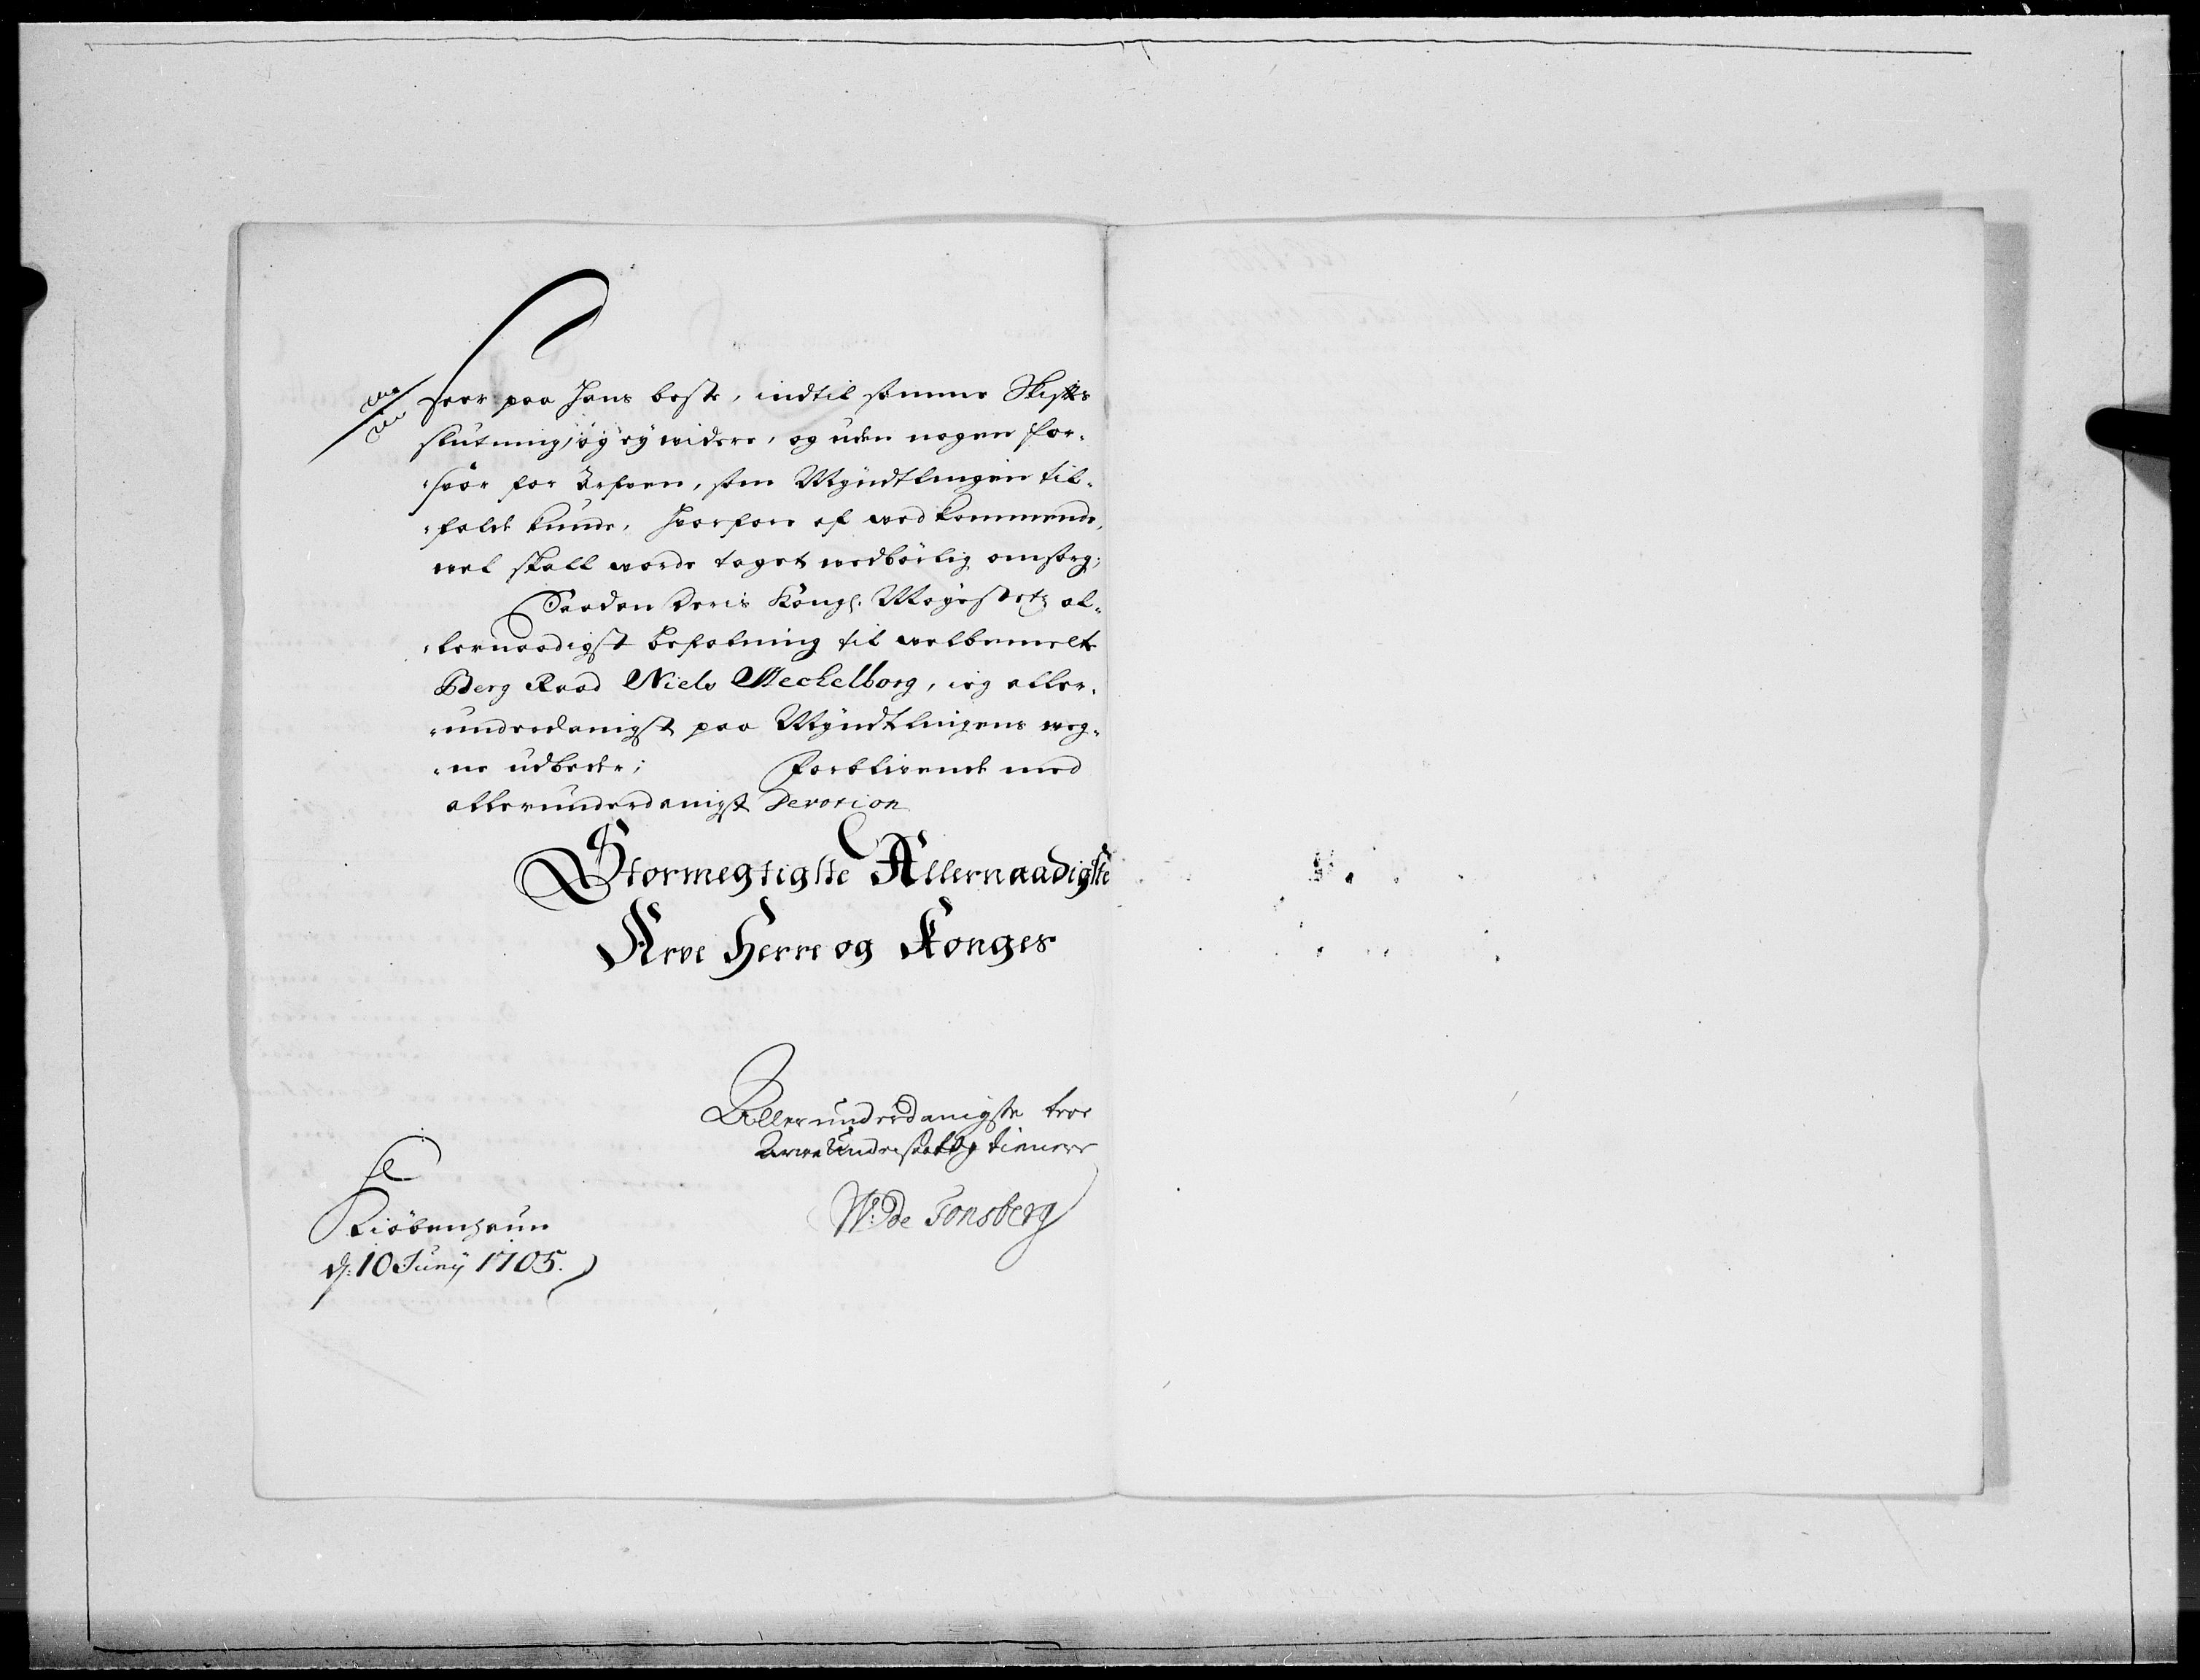 svar paa Hans beste, indtil samme Skiftes
slutning, og ey widere, og uden nogen for¬
¬svar for Arfven, som Myndtlingen til¬
¬falde kunde, hvorfore af wedkommende,
wel skall worde taget wedbörlig omsorg;
Saadan Deris Kongl: Mayestetz al¬
¬lernaadigst befalning til welbemelte
Berg Raad Niels Mechelborg, ieg aller¬
¬underdanigst paa Myndtlingens weg¬
¬ne udbeder; Forblivende med
allerunderdanigst Devotion
Stormegtigste Allernaadigste
Arve Herre og Konges
Allerunderdanigste troe
Arve Undersaatt og tienere
W: de Tonsberg
Kiöbenhaun
d: 10 Juny 1705.